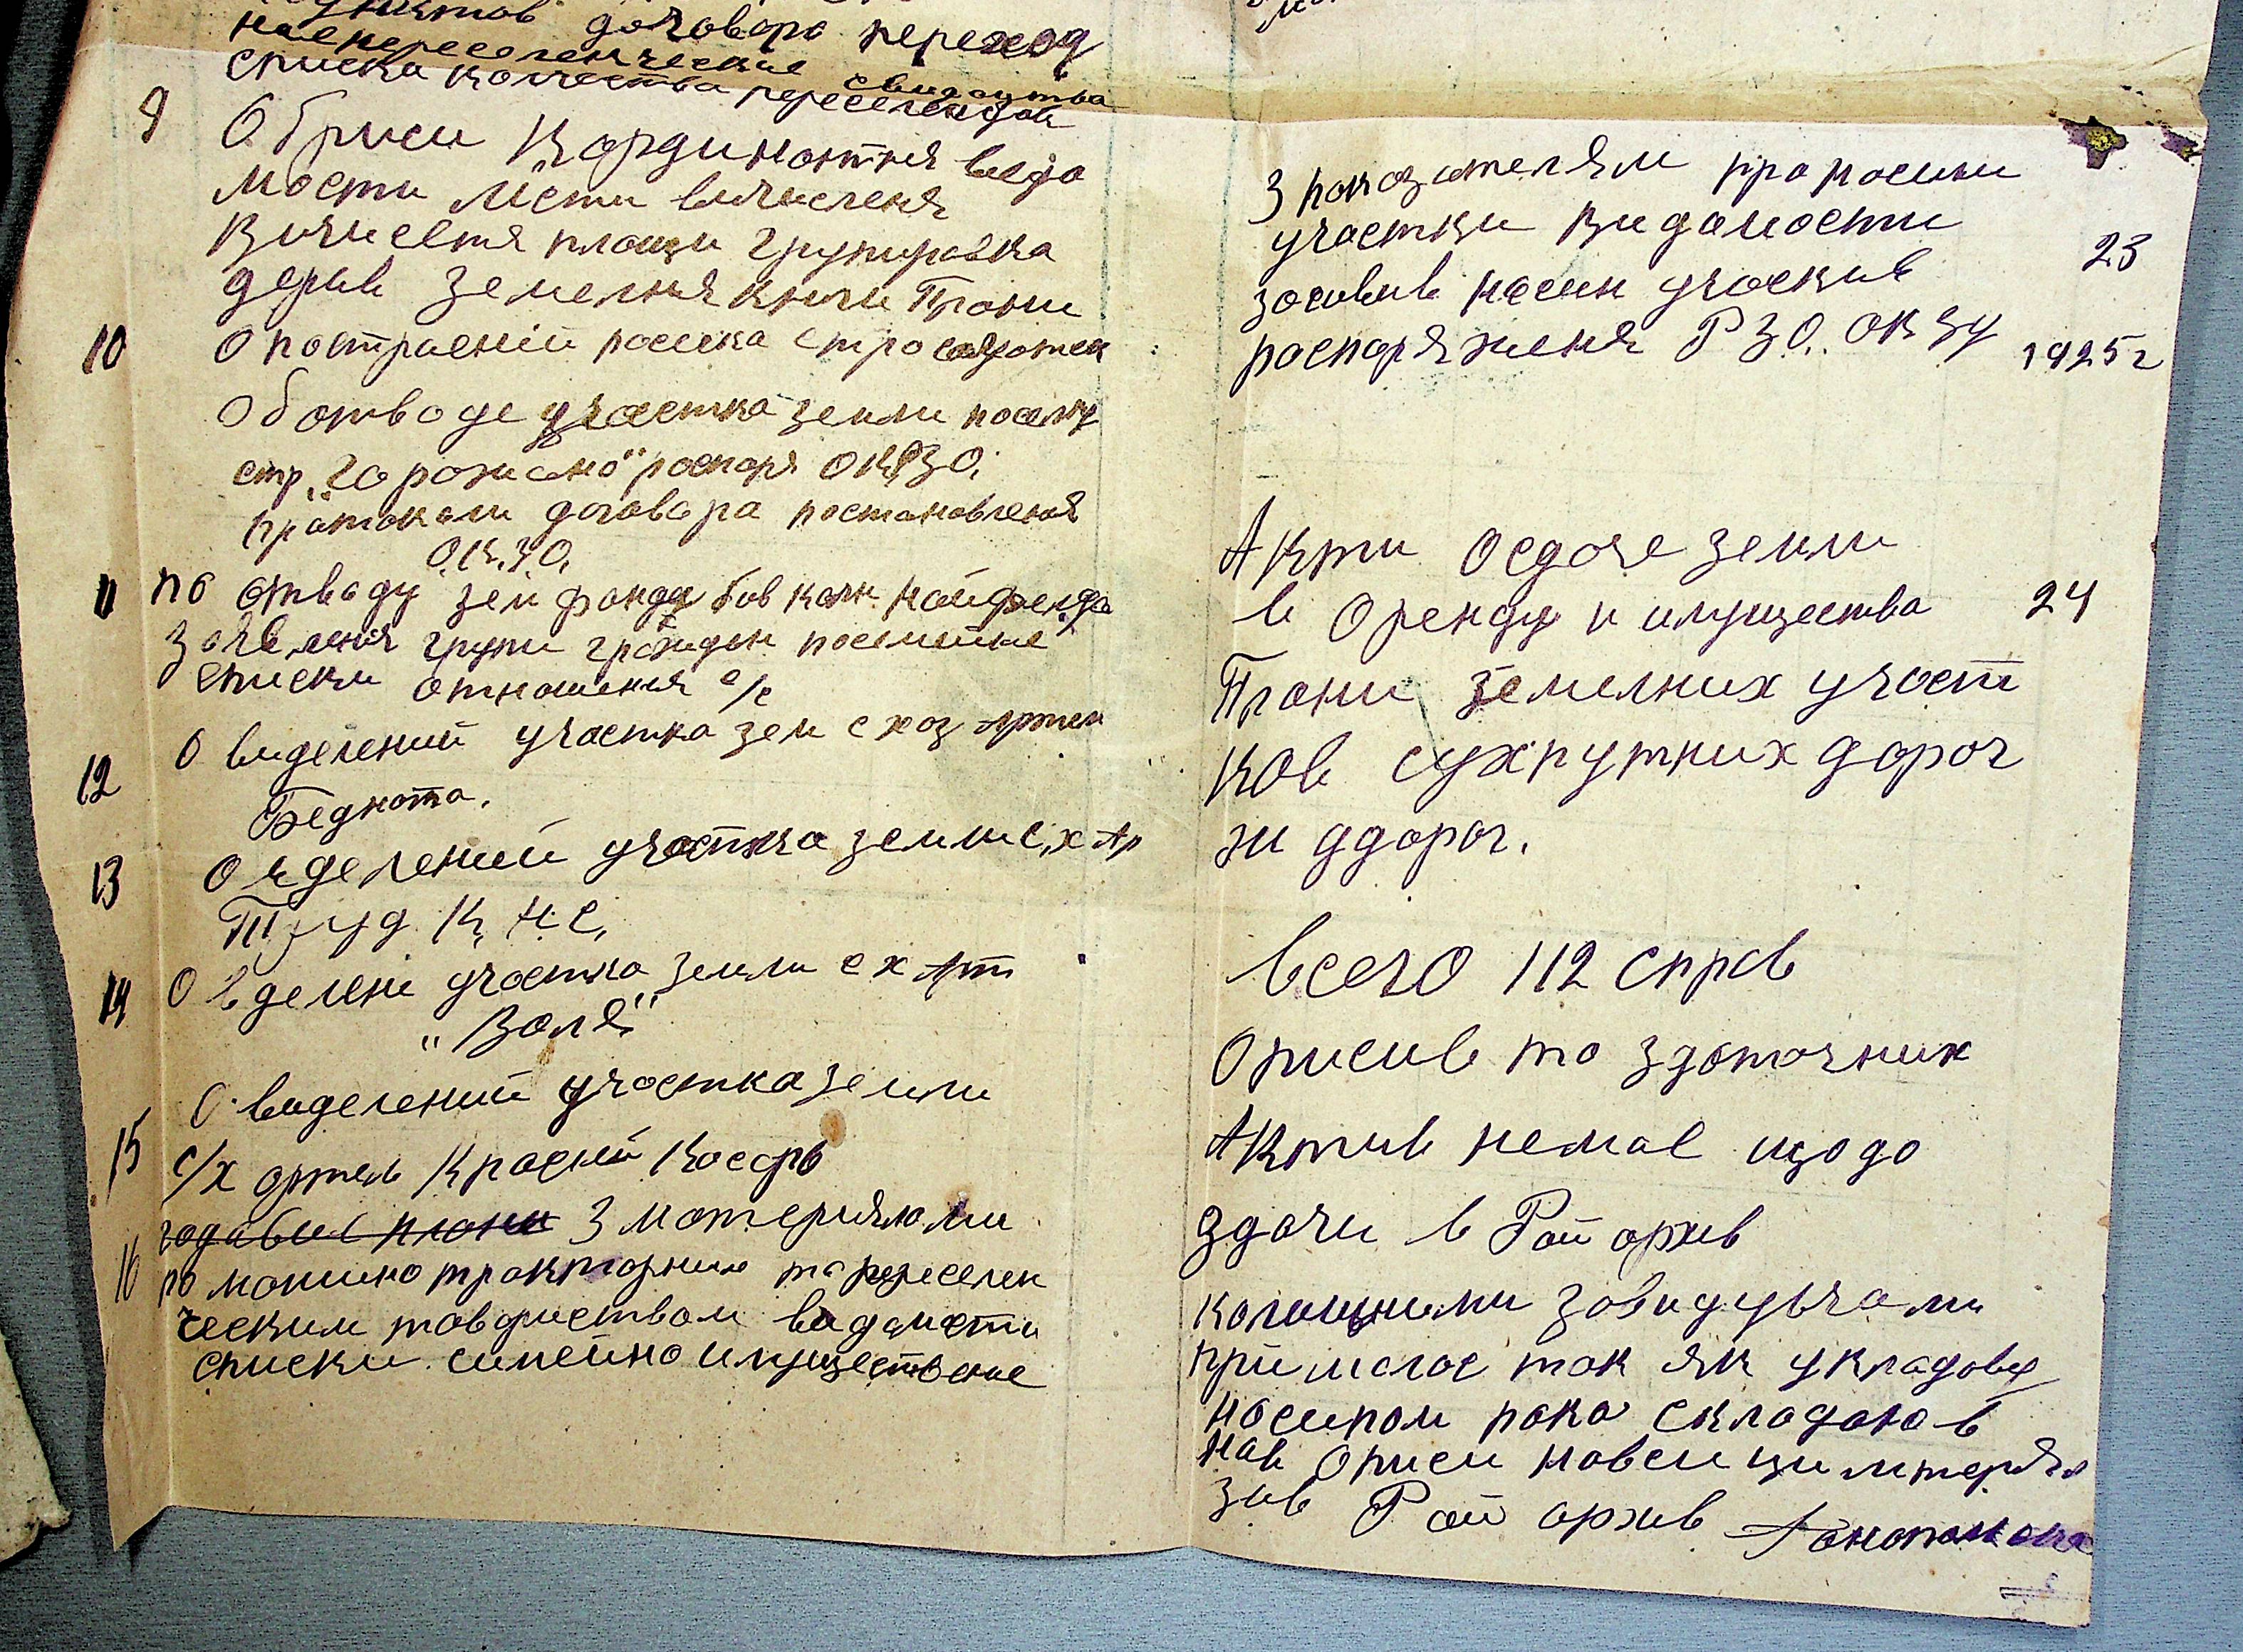 договора переход
непереселенческие свидоцтва
списки количества переселенцов
9 Обриси Кординатния ведо
мости Лісти вичисленя
Вичисетя площи групировка
держв земелния книги Плани
10 О построеній поселка строволотск
Об отводе участка земли поселку
стр. "Горожано" распоря ОКРЗО;
протоколи договора постановления
О.К.З.О.
11 по отводу зем фонду бов колн.
Заявления групи граждан посемейние
списки отношения с/с
О виделений участка зем с хоз Артели
12 Беднота.
13 О вделений участка земли с,х Ар
Труд К, Н.С,
14 О вделені участка земли с х Арт
"Воля"
О виделений участка земли
15 с/х артель Красний Косарь
годавие плани З материялами
16 по машино тракторним та переселен
ческим товариствам ведамости
списки семейно имуществение
З показателями про посики
участки видомости
засивив насин учаскив 23
распоряжения РЗО. ОКЗУ 1925г
Акти осдаче земли
в Оренду и имущества 24
Плани земелних участ
ков сухпутних дорог
жи ддорог.
всего 112 спрв
Описив то здоточник
Актив немає щодо
здачи в Рай архив
колишними зовидуючами
приймалос так як укладовц
насипом пака складанов
нав Описи навсі ци мтеріял
зав Рай архив